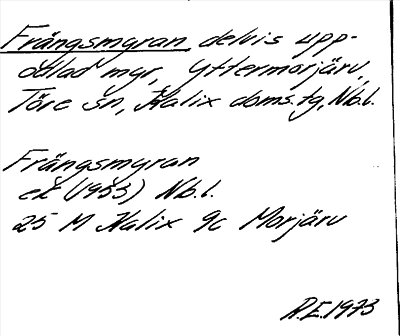 Frängsmyran, delvis upp-
odlad myr, Yttermorjärv,
Töre sn, Kalix doms.tg, Nb.l.
Frängsmyran
ek (1953) Nb.l.
25 M Kalix 9c Morjärv
R.E. 1973